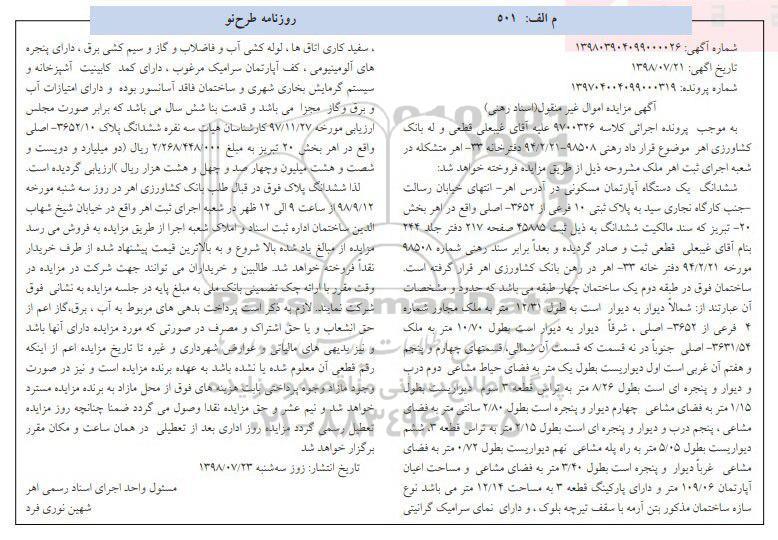 م الف: ۵۰۱
روزنامه طرح‌نو
شماره آگهی: ۱۳۹۸۰۳۹۰۴۰۹۹۰۰۰۰۲۶
تاریخ آگهی: ۱۳۹۸/۰۷/۲۱
شماره پرونده: ۱۳۹۷۰۴۰۰۴۰۹۹۰۰۰۳۱۹
آگهی مزایده اموال غیر منقول(اسناد رهنی)
به موجب پرونده اجرائی کلاسه ۹۷۰۰۳۲۶ علیه آقای غیبعلی قطعی و له بانک
کشاورزی اهر موضوع قرار داد رهنی ۹۸۵۰۸-۹۴/۲/۲۱ دفترخانه ۳۳- اهر متشکله در
شعبه اجرای ثبت اهر ملک مشروحه ذیل از طریق مزایده فروخته خواهد شد:
ششدانگ یک دستگاه آپارتمان مسکونی در آدرس اهر- انتهای خیابان رسالت
-جنب کارگاه نجاری سید به پلاک ثبتی ۱۰ فرعی از ۳۶۵۲- اصلی واقع در اهر بخش
۲۰- تبریز که سند مالکیت ششدانگ به ذیل ثبت ۴۵۸۸۵ صفحه ۲۱۷ دفتر جلد ۲۴۴
بنام آقای غیبعلی قطعی ثبت و صادر گردیده و بعداً برابر سند رهنی شماره ۹۸۵۰۸
مورخه ۹۴/۲/۲۱ دفتر خانه ۳۳- اهر در رهن بانک کشاورزی اهر قرار گرفته است.
ساختمان فوق در طبقه دوم یک ساختمان چهار طبقه می باشد که حدود و مشخصات
آن عبارتند از: شمالاً دیوار به دیوار است به طول ۱۲/۳۱ متر به ملک مجاور شماره
۴ فرعی از ۳۶۵۲- اصلی ، شرقاً دیوار به دیوار است بطول ۱۰/۷۰ متر به ملک
۳۶۳۱/۵۴- اصلی جنوباً در نه قسمت که قسمت آن شمالی، قسمتهای چهارم و پنجم
و هفتم آن غربی است اول دیواریست بطول یک متر به فضای حیاط مشاعی دوم درب
و دیوار و پنجره ای است بطول ۸/۲۶ متر به تراس قطعه ۳ سوم دیواریست بطول
۱/۱۵ متر به فضای مشاعی چهارم دیوار و پنجره است بطول ۲/۸۰ سانتی متر به فضای
مشاعی ، پنجم درب و دیوار و پنجره ای است بطول ۲/۱۵ متر به تراس قطعه ۳، ششم
دیواریست بطول ۵/۰۵ متر به راه پله مشاعی نهم دیواریست بطول ۰/۷۲ متر به فضای
مشاعی غرباً دیوار و پنجره است بطول ۳/۴۰ متر به فضای مشاعی و مساحت اعیان
آپارتمان ۱۰۹/۰۶ متر و دارای پارکینگ قطعه ۳ به مساحت ۱۲/۱۴ متر می باشد نوع
سازه ساختمان مذکور بتن آرمه با سقف تیرچه بلوک ، و دارای نمای سرامیک گرانیتی
، سفید کاری اتاق ها ، لوله کشی آب و فاضلاب و گاز و سیم کشی برق ، دارای پنجره
های آلومینیومی ، کف آپارتمان سرامیک مرغوب ، دارای کمد کابینیت آشپزخانه و
سیستم گرمایش بخاری شهری و ساختمان فاقد آسانسور بوده و دارای امتیازات آب
و برق وگاز مجزا می باشد و قدمت بنا شش سال می باشد که برابر صورت مجلس
ارزیابی مورخه ۹۷/۱۱/۲۷ کارشناسان هیات سه نفره ششدانگ پلاک ۳۶۵۲/۱۰- اصلی
واقع در اهر بخش ۲۰ تبریز به مبلغ ۲/۲۶۸/۴۴۸/۰۰۰ ریال (دو میلیارد و دویست و
شصت و هشت میلیون وچهار صد و چهل و هشت هزار ریال )ارزیابی گردیده است.
لذا ششدانگ پلاک فوق در قبال طلب بانک کشاورزی اهر در روز سه شنبه مورخه
۹۸/۹/۱۲ از ساعت ۹ الی ۱۲ ظهر در شعبه اجرای ثبت اهر واقع در خیابان شیخ شهاب
الدین ساختمان اداره ثبت اسناد و املاک شعبه اجرا از طریق مزایده به فروش می رسد
مزایده از مبالغ یاد شده بالا شروع و به بالاترین قیمت پیشنهاد شده از طرف خریدار
نقداً فروخته خواهد شد. طالبین و خریداران می توانند جهت شرکت در مزایده در
وقت مقرر با ارائه چک تضمینی بانک ملی به مبلغ پایه در جلسه مزایده به نشانی فوق
شرکت نمایند. لازم به ذکر است پرداخت بدهی های مربوط به آب ، برق،گاز اعم از
حق انشعاب و یا حق اشتراک و مصرف در صورتی که مورد مزایده دارای آنها باشد
و نیز بدیهی های مالیاتی و عوارض شهرداری و غیره تا تاریخ مزایده اعم از اینکه
رقم قطعی آن معلوم شده یا نشده باشد به عهده برنده مزایده است و نیز در صورت
وجود مازاد وجوه پرداختی بابت هزینه های فوق از محل مازاد به برنده مزایده مسترد
خواهد شد و نیم عشر و حق مزایده نقدا وصول می گردد ضمنا چنانچه روز مزایده
تعطیل رسمی گردد مزایده روز اداری بعد از تعطیلی در همان ساعت و مکان مقرر
برگزار خواهد شد
تاریخ انتشار: زوز سه‌شنبه ۱۳۹۸/۰۷/۲۳
مسئول واحد اجرای اسناد رسمی اهر
شهین نوری فرد
ParsNamadData